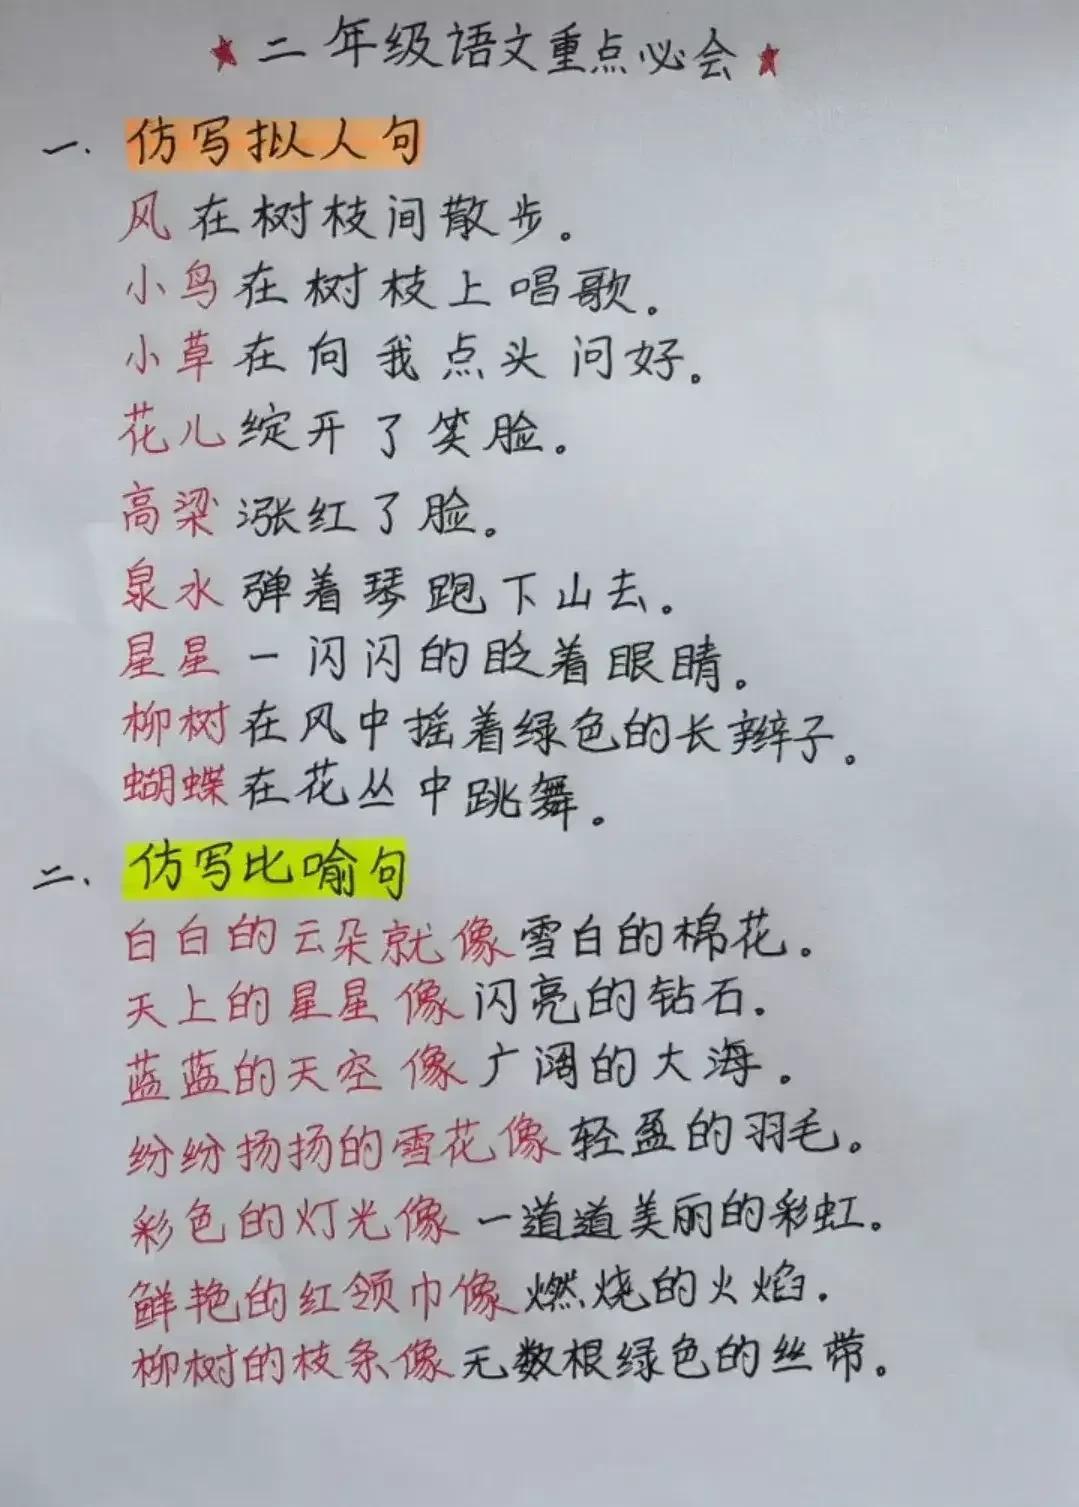 ★二年级语文重点必会★
一、仿写拟人句
风在树枝间散步。
小鸟在树枝上唱歌。
小草在向我点头问好。
花儿绽开了笑脸。
高梁涨红了脸。
泉水弹着琴跑下山去。
星星一闪闪的眨着眼睛。
柳树在风中摇着绿色的长辫子。
蝴蝶在花丛中跳舞。
二、仿写比喻句
白白的云朵就像雪白的棉花。
天上的星星像闪亮的钻石。
蓝蓝的天空像广阔的大海。
纷纷扬扬的雪花像轻盈的羽毛。
彩色的灯光像一道道美丽的彩虹。
鲜艳的红领巾像燃烧的火焰.
柳树的枝条像无数根绿色的丝带。